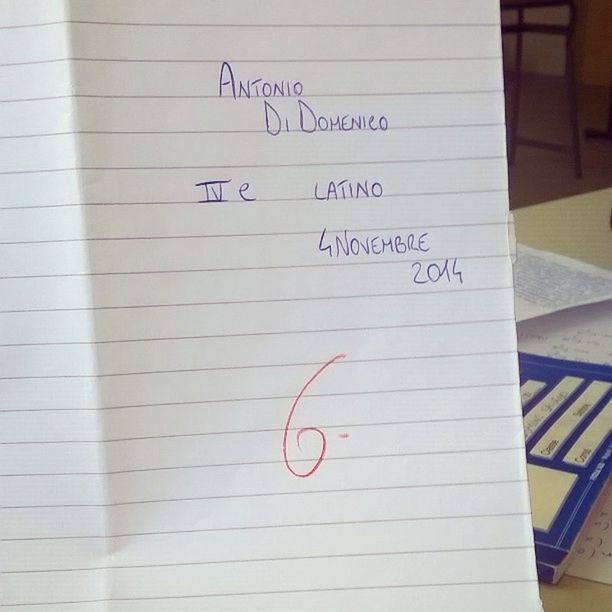 ANTONIO
DI DOMENICO
IV e LATINO
4 NOVEMBRE
2014
6-